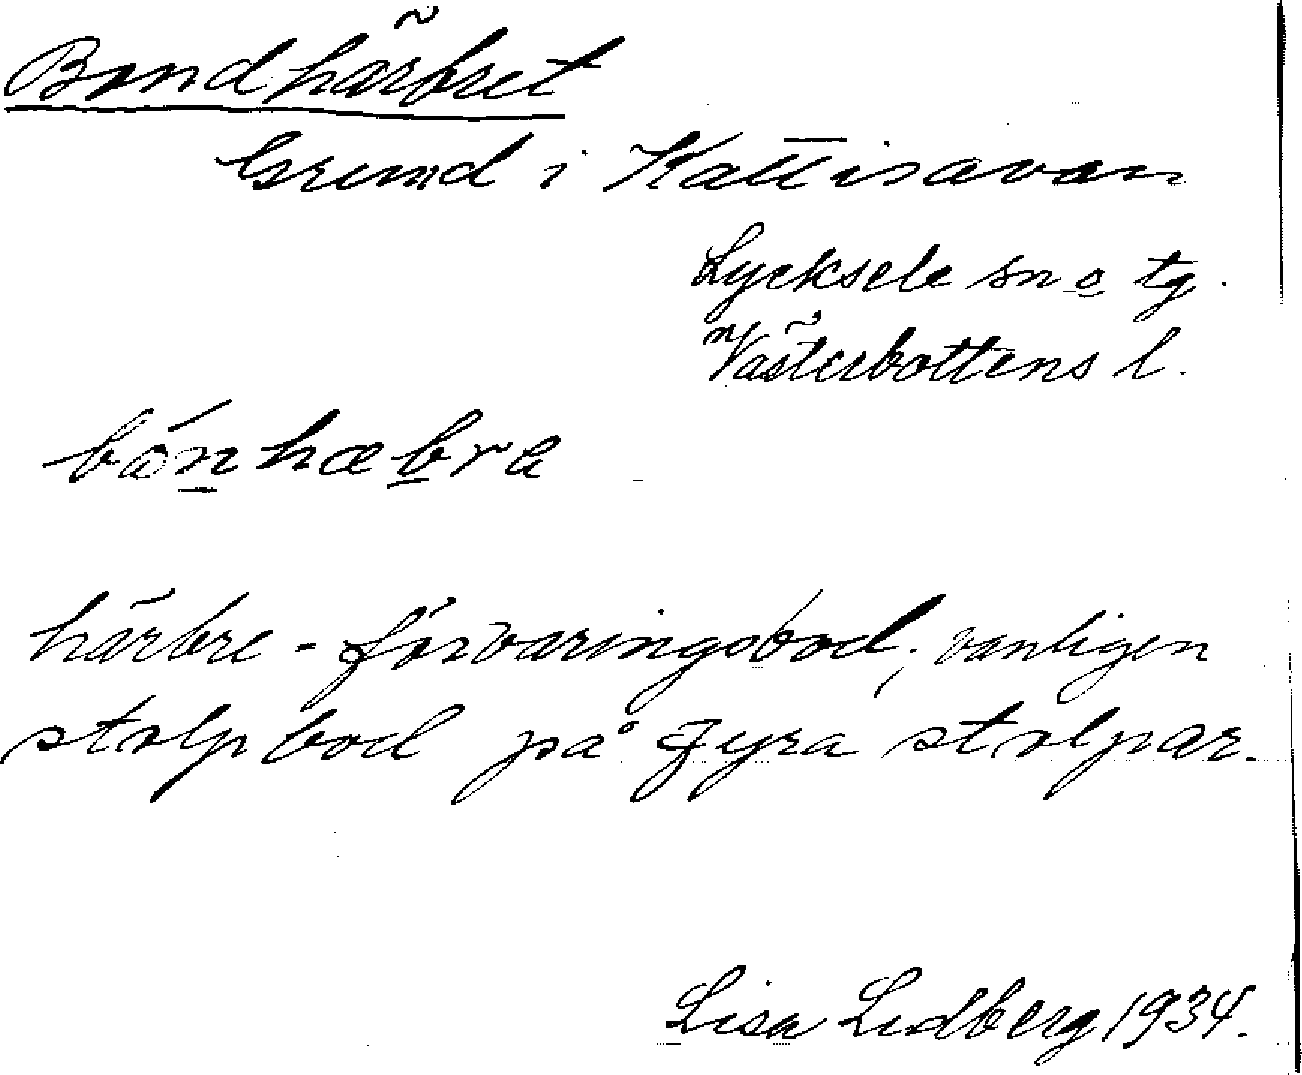 Bondhärbret
Grund i Kattisavan
Lycksele sn o tg.
Västerbottens l.
bónhæbrɐ
härbre - förvaringsbod, vanligen
stolpbod på fyra stolpar.
Lisa Lidberg 1934.